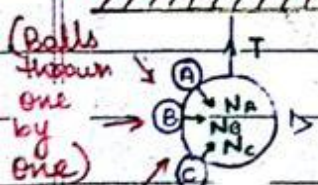 (Balls
thrown
one
by
one)
T
A
B
C
NA
NB
NC